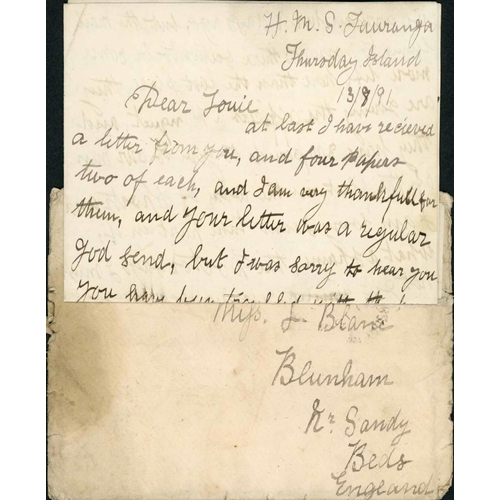 H. M. S. Tauranga
Thursday Island
13/8/91
Dear Louie
at last I have recieved
a letter from you, and four Papers
two of each, and I am very thankfull for
them, and your letter was a regular
God send, but I was sorry to hear you
you have been
Miss. L. Blane
Blunham
Nr Sandy
Beds
England